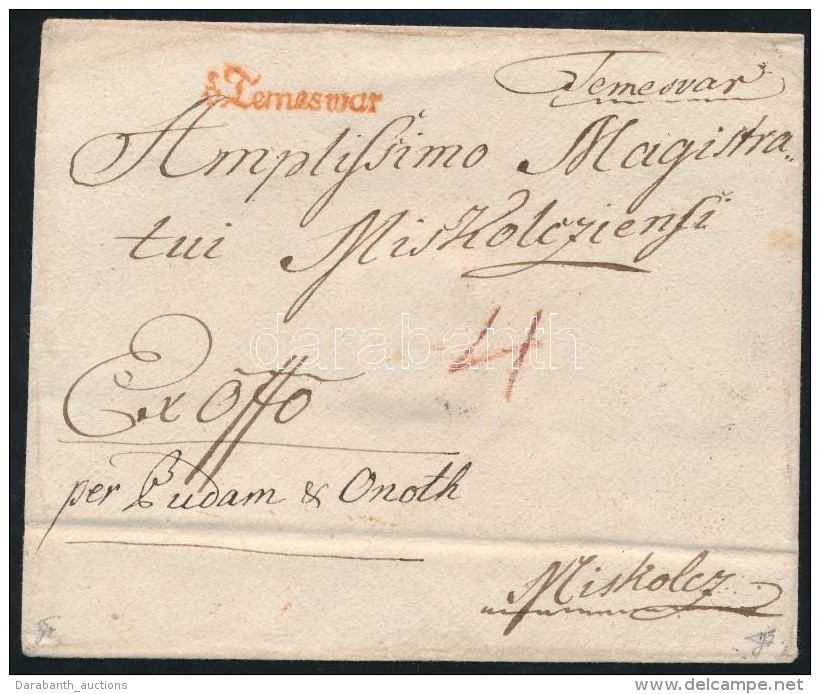 v:Temeswar
Temesvar
Amplissimo Magistra-
tui Miskolcziensi
4
darabanth
Ex offo
per Budam & Onoth
Miskolcz
Darabanth_auctions
delcampe.net